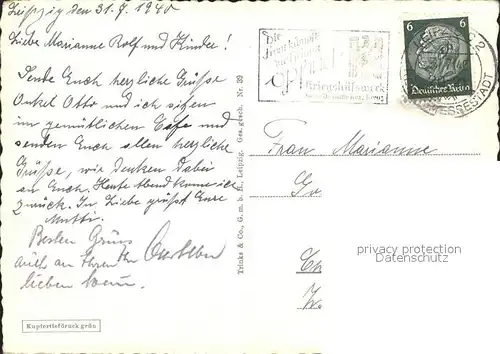 Leipzig den 31.7.1940
Liebe Marianne Rolf und Kinder!
Sende Euch herzliche Grüße
Onkel Otto und ich sitzen
im gemütlichen Cafe und
senden Euch allen herzliche
Grüße, wir denken dabei
an Euch. Heute Abend komme ich
zurück. In Liebe grüßt Eure
Mutti.
Besten Gruss
auch an Ihren
lieben
Kupfertiefdruck grün
Trinks & Co., G. m. b. H., Leipzig. Ges. gesch. Nr. 89
Die
Kriegshilfswerk
6 6
Deutsches Reich
LEIPZIG C2
MESSESTADT
Frau Marianne
privacy protection
Datenschutz